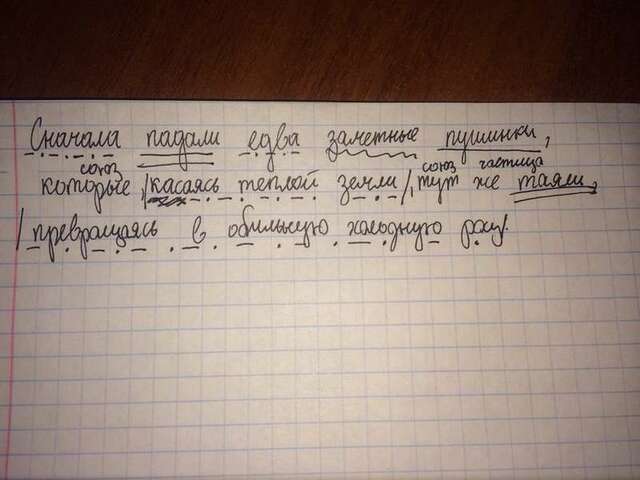 Сначала падали едва заметные пушинки,
союз союз частица
которые /касаясь теплой земли/, тут же таяли,
/превращаясь в обильную холодную росу/.